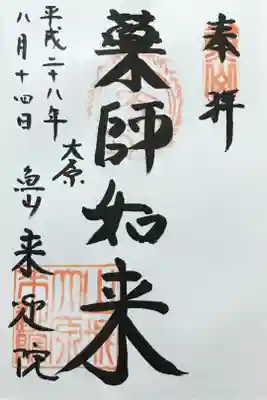 奉拝
薬師如来
大原
魚山 来迎院
平成二十八年
八月十四日